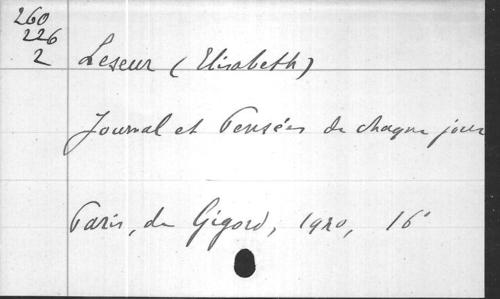 260
226
2
Leseur (Elisabeth)
Journal et Pensées de chaque jour
Paris, de Gigord, 1920, 16°